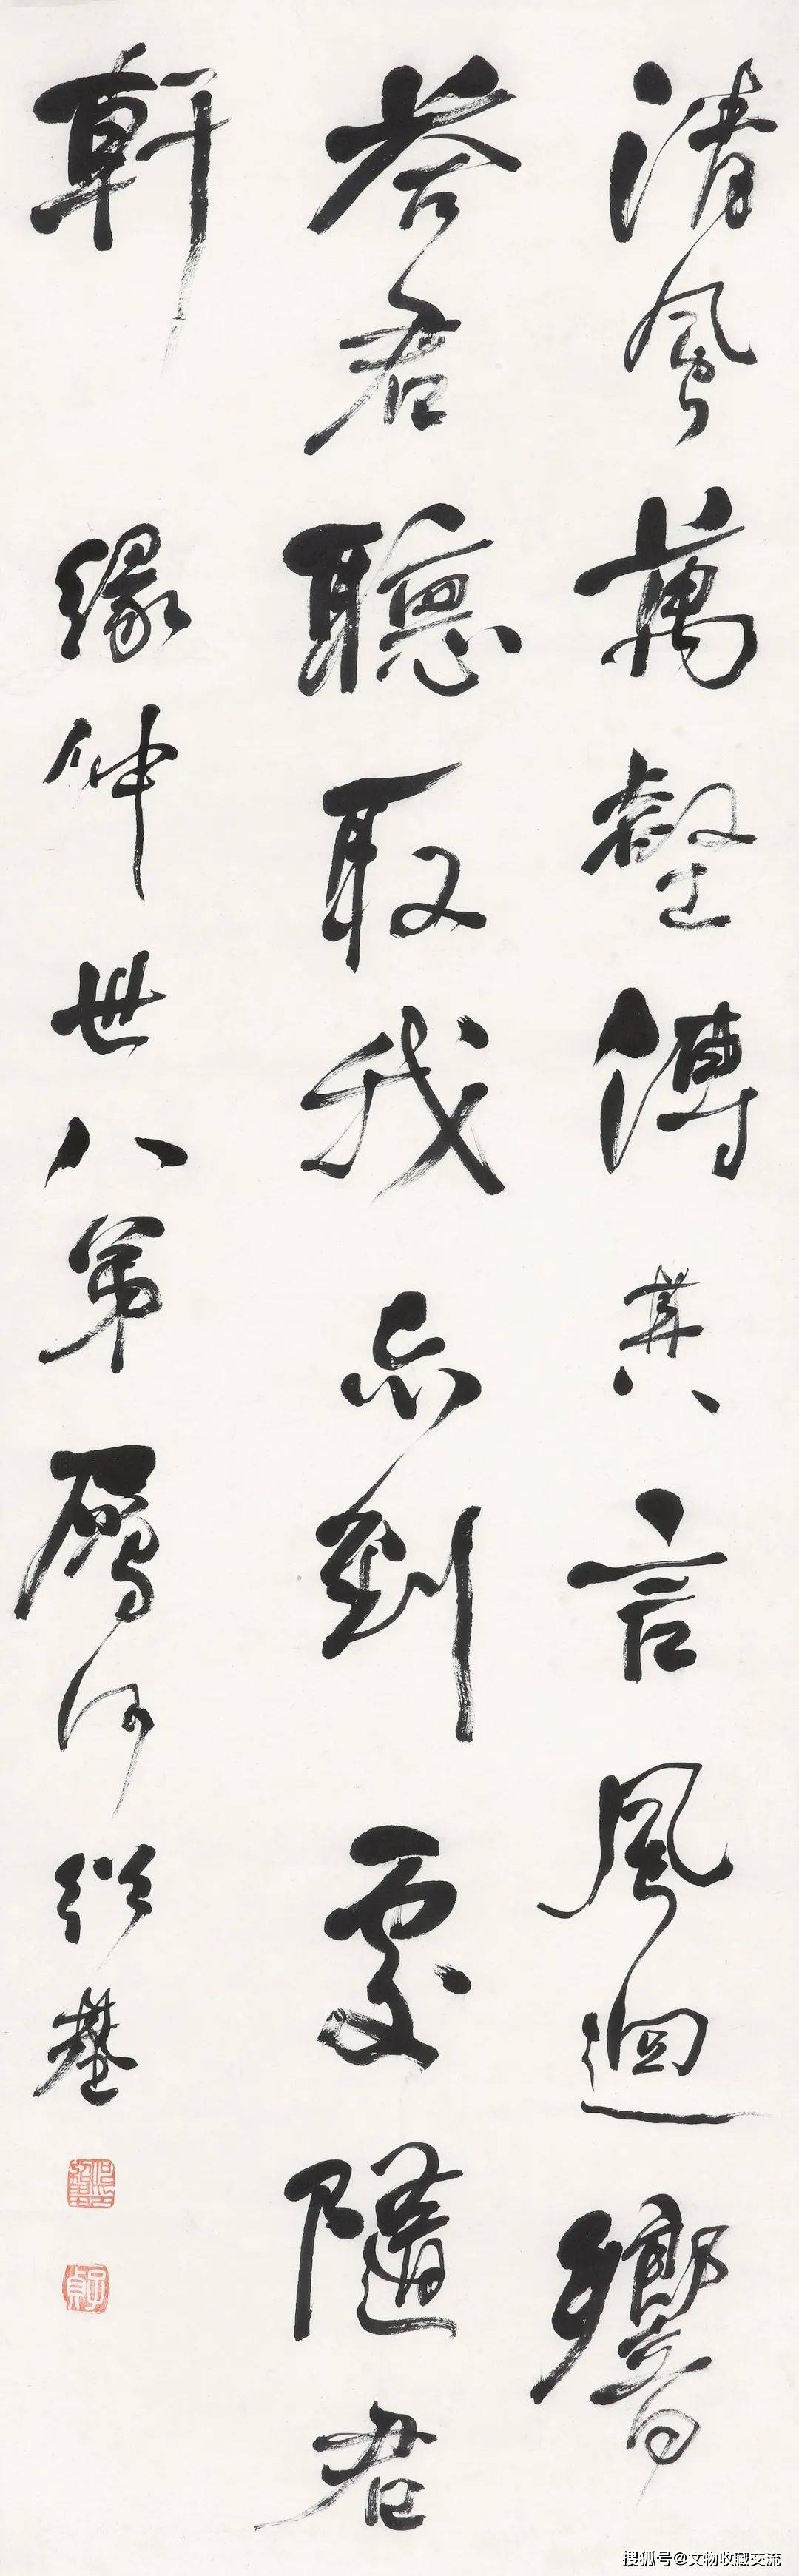 清風萬壑傳其言風迴響
答君聽取我忘到處隨君
軒 緣仲世八弟屬何紹基
何紹基印
子貞
搜狐号@文物收藏交流